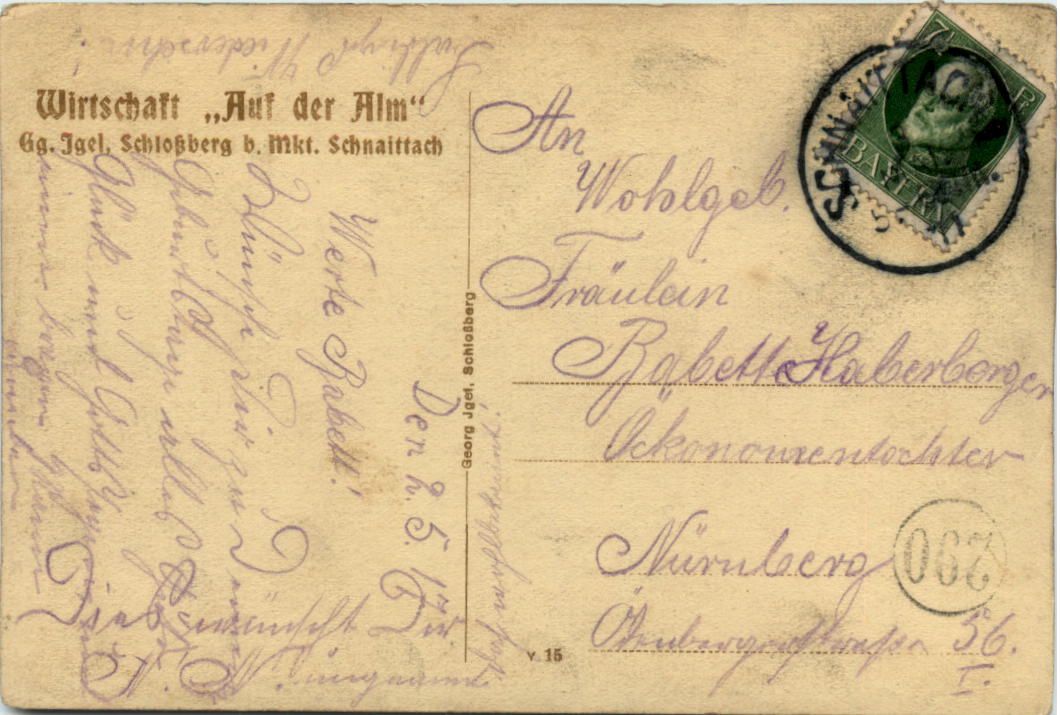 Wirtschaft „Auf der Alm"
Gg. Jgel, Schloßberg b. Mkt. Schnaittach
Den 2. 5. 17.
Werte Babett!
Wünsche dir zu Deinem
Geburtstage alles Gute
Glück und Gottes Segen
Dies wünscht Dir
N. N.
Wiedersehn!
Georg Jgel, Schloßberg
V. 15
An
Wohlgeb.
Fräulein
Babette Haberberger
Öckonomentochter
Nürnberg
56.
I.
7
BAYERN
SCHNAITTACH
290